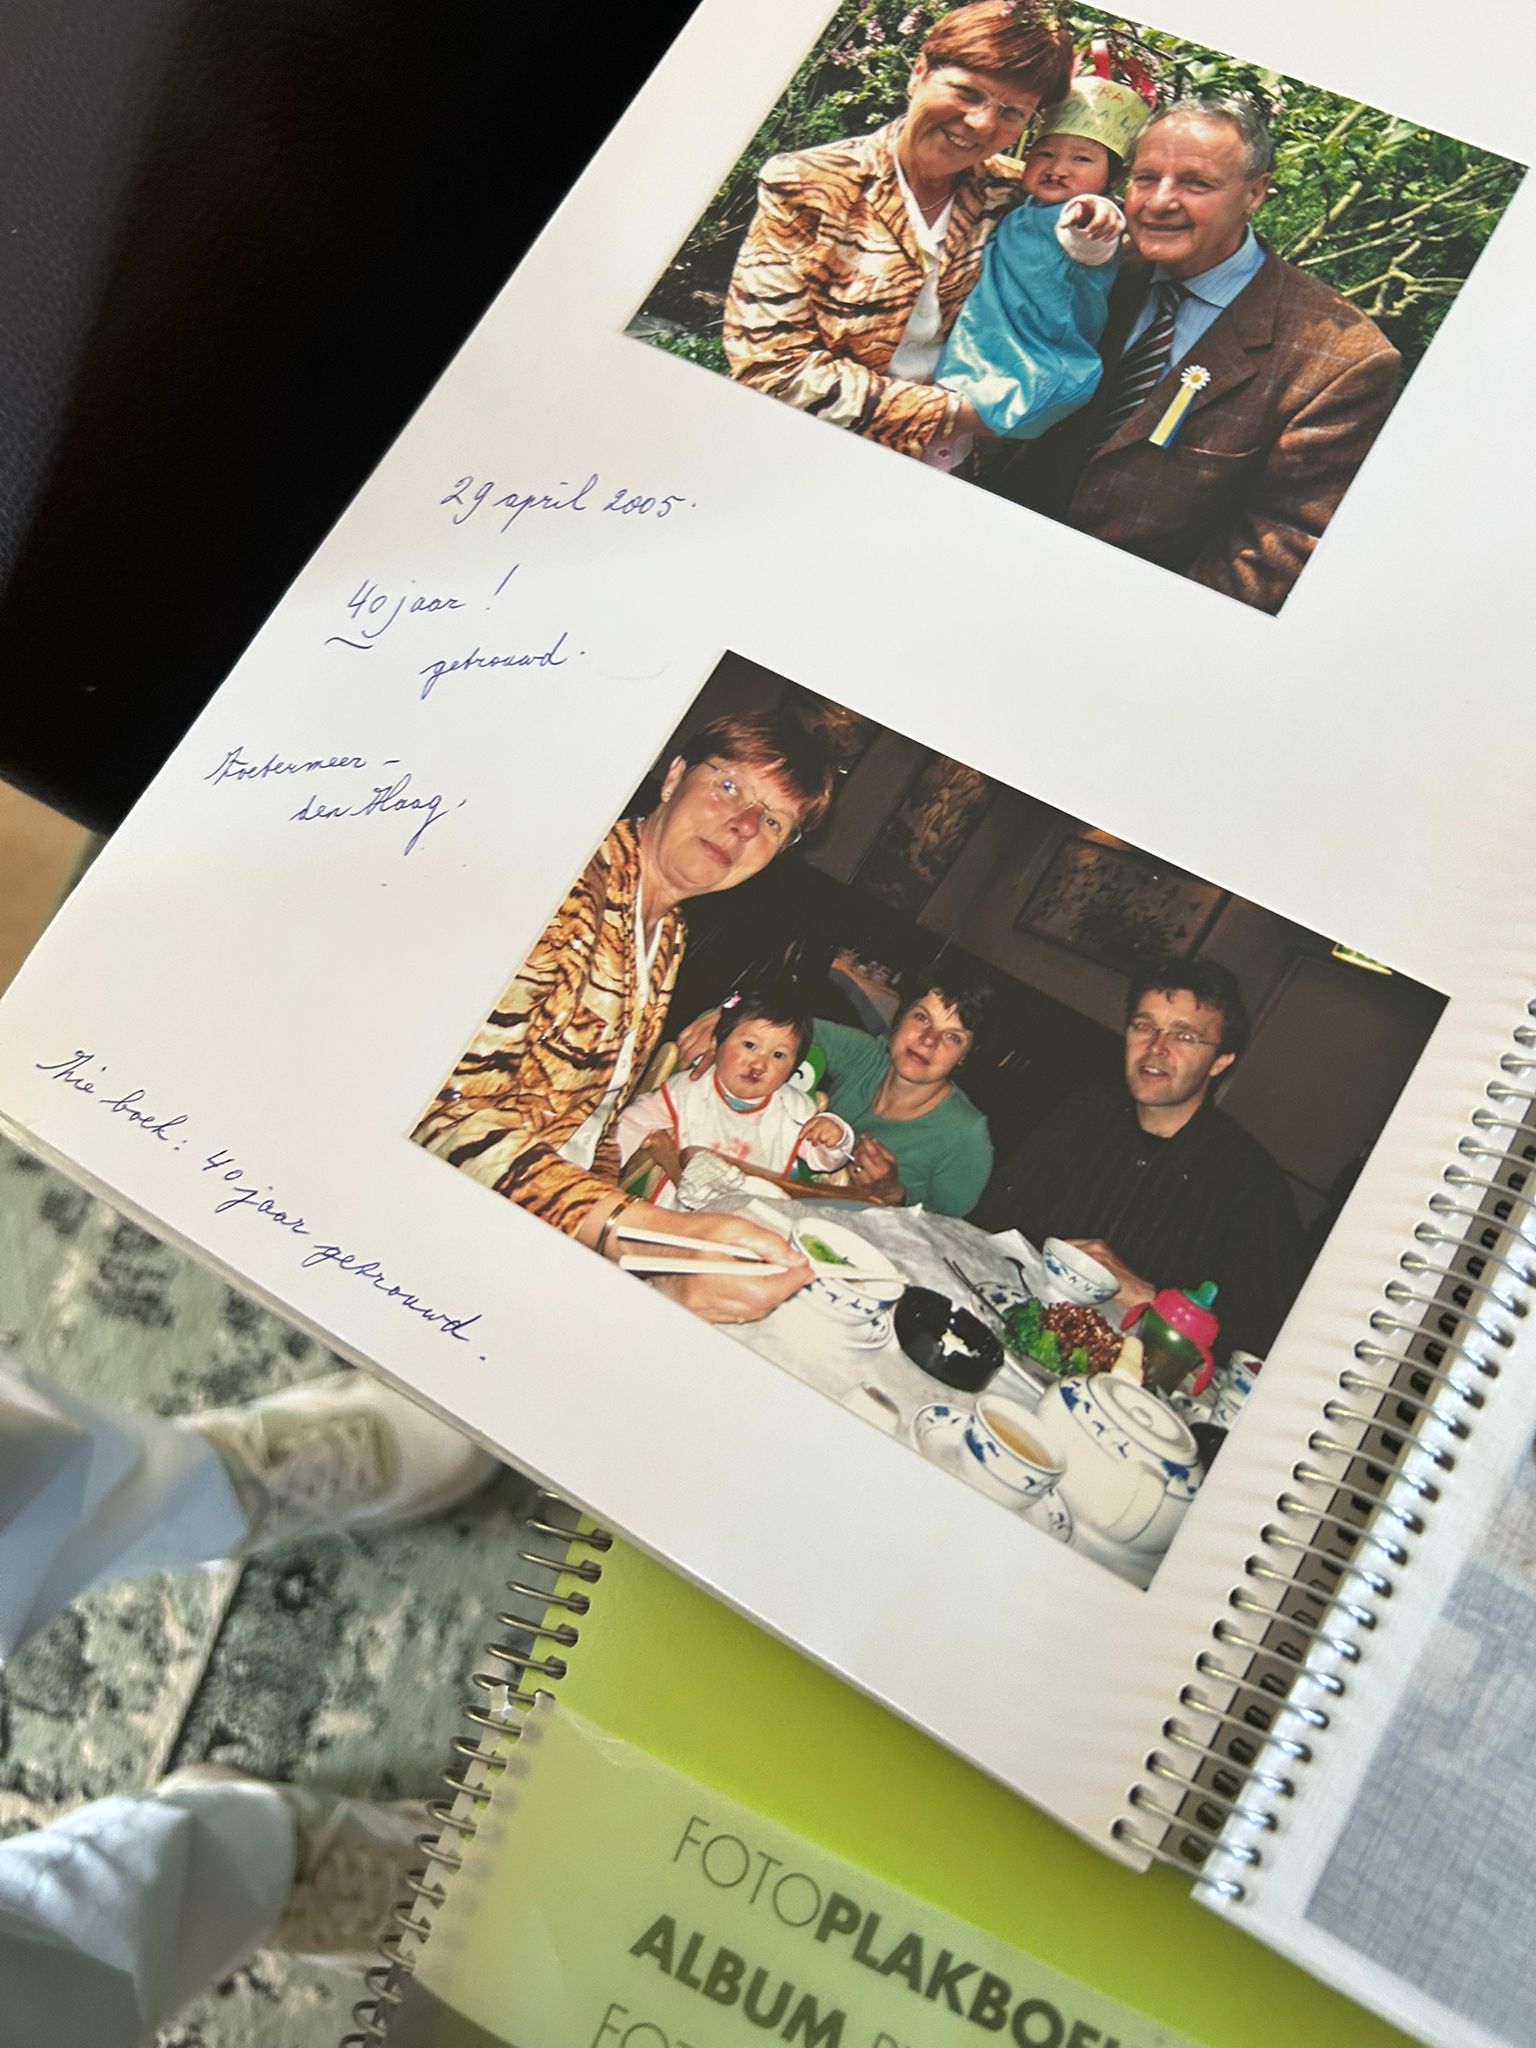 29 april 2005.
40 jaar!
getrouwd.
Zoetermeer -
den Haag.
Zie boek: 40 jaar getrouwd.
FOTOPLAKBOEK
ALBUM